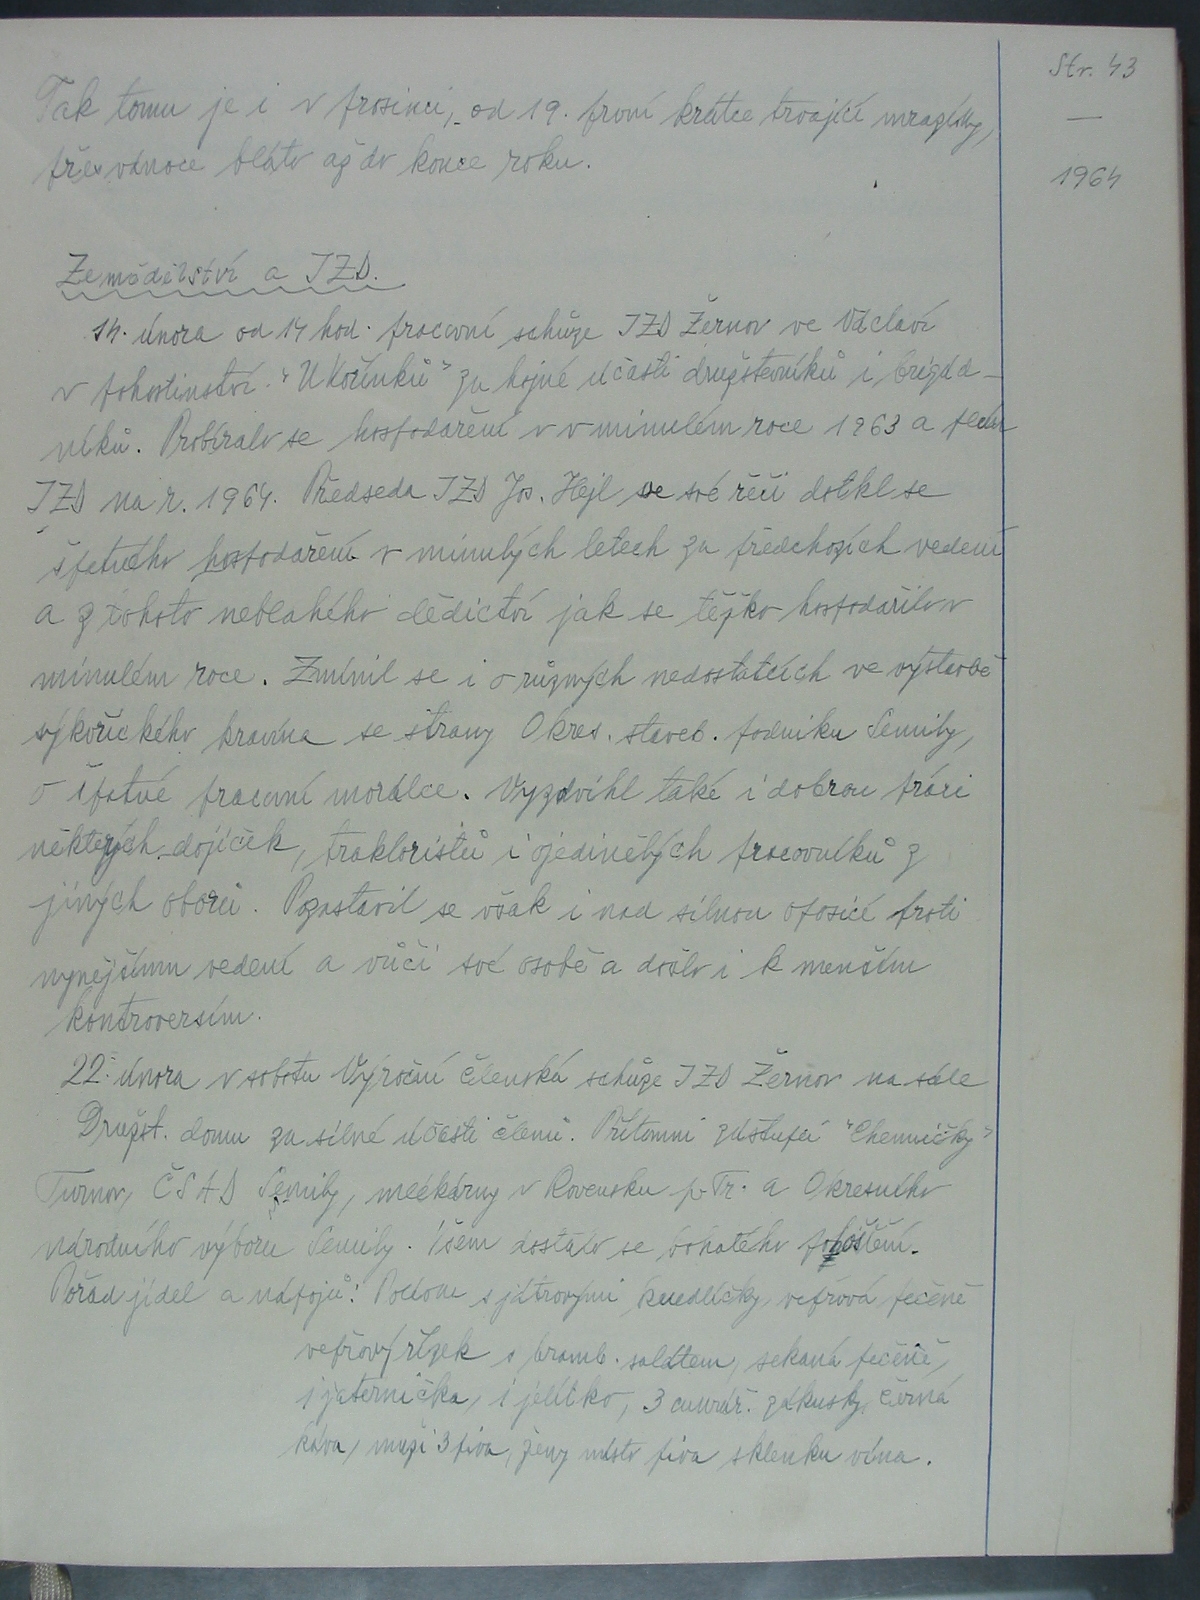 Str. 43
—
1964
Tak tomu je i v prosinci, od 19. první krátce trvající mrazíky,
přes vánoce bláto až do konce roku.
Zemědělství a JZD.
14. února od 14 hod. pracovní schůze JZD Žernov ve Václaví
v pohostinství "U Kořínků" za hojné účasti družstevníků i brigád-
níků. Probíralo se hospodaření v v minulém roce 1963 a plán
JZD na r. 1964. Předseda JZD Jos. Hejl ve své řeči dotkl se
špatného hospodaření v minulých letech za předchozích vedení
a z tohoto neblahého dědictví jak se těžko hospodařilo v
minulém roce. Zmínil se i o různých nedostatcích ve výstavbě
sýkořického kravína se strany Okres. staveb. podniku Semily,
o špatné pracovní morálce. Vyzdvihl také i dobrou práci
některých dojiček, traktoristů i ojedinělých pracovníků z
jiných oborů. Pozastavil se však i nad silnou oposicí proti
nynějšímu vedení a vůči své osobě a došlo i k menším
kontroversím.
22. února v sobotu Výroční členská schůze JZD Žernov na sále
Družst. domu za silné účasti členů. Přítomni zástupci "Chemičky"
Turnov, ČSAD Semily, mlékárny v Rovensku p. Tr. a Okresního
národního výboru Semily. Všem dostalo se bohatého pohoštění.
Pořad jídel a nápojů: Polévka s játrovými knedlíčky, vepřová pečeně
vepřový řízek s bramb. salátem, sekaná pečeně,
1 jaternička, 1 jelítko, 3 cukrář. zákusky, černá
káva, muži 3 piva, ženy místo piva sklenku vína.